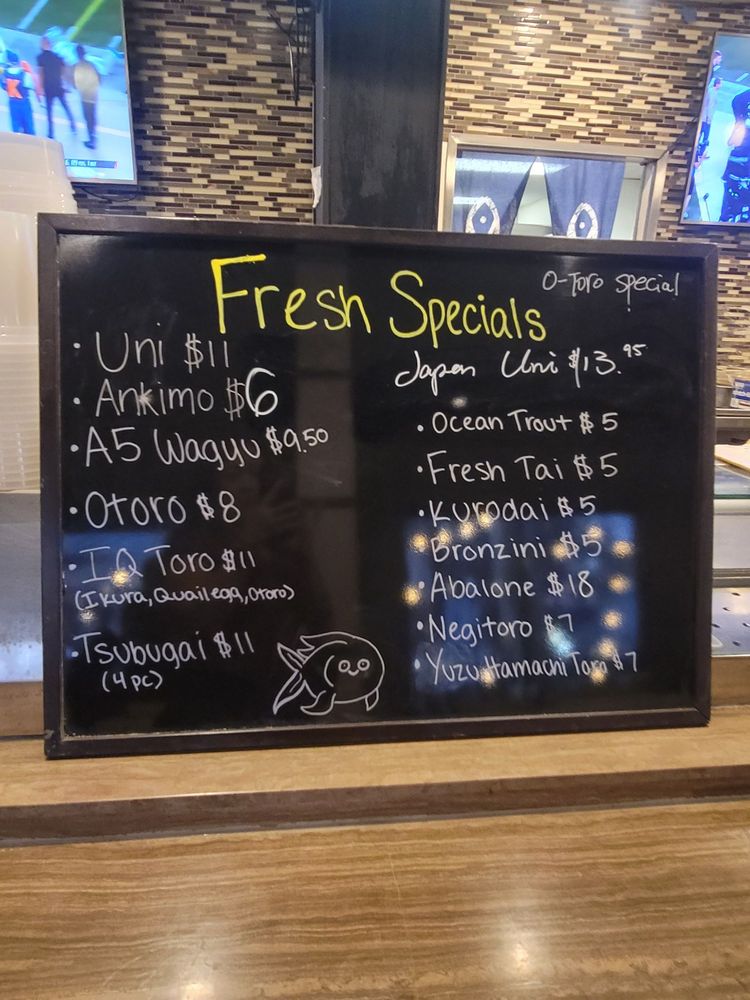 Fresh Specials
O-Toro special
• Uni $11
• Ankimo $6
• A5 Wagyu $9.50
• Otoro $8
• IQ Toro $11
(Ikura, Quail egg, Otoro)
• Tsubugai $11
(4pc)
Japan Uni $13.95
• Ocean Trout $5
• Fresh Tai $5
• Kurodai $5
• Bronzini $5
• Abalone $18
• Negitoro $7
• Yuzu Hamachi Toro $7